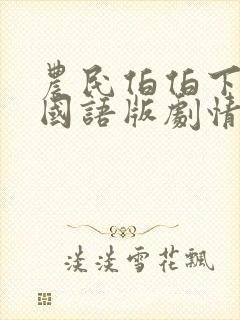 農民伯伯下
國語版劇情
淡淡雪花飄